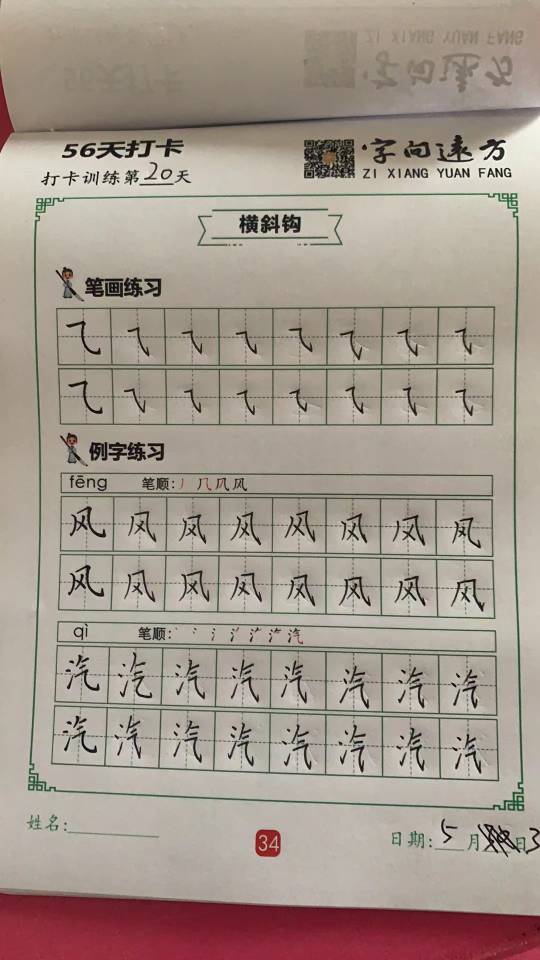 56天打卡
字向远方
打卡训练第20天
ZI XIANG YUAN FANG
横斜钩
笔画练习
⺄ ⺄ ⺄ ⺄ ⺄ ⺄ ⺄ ⺄
⺄ ⺄ ⺄ ⺄ ⺄ ⺄ ⺄ ⺄
例字练习
fēng 笔顺:丿 几 风 风
风 风 风 风 风 风 风 风
风 风 风 风 风 风 风 风
qì 笔顺:
汽 汽 汽 汽 汽 汽 汽 汽
汽 汽 汽 汽 汽 汽 汽 汽
姓名:
34
日期:5月日3